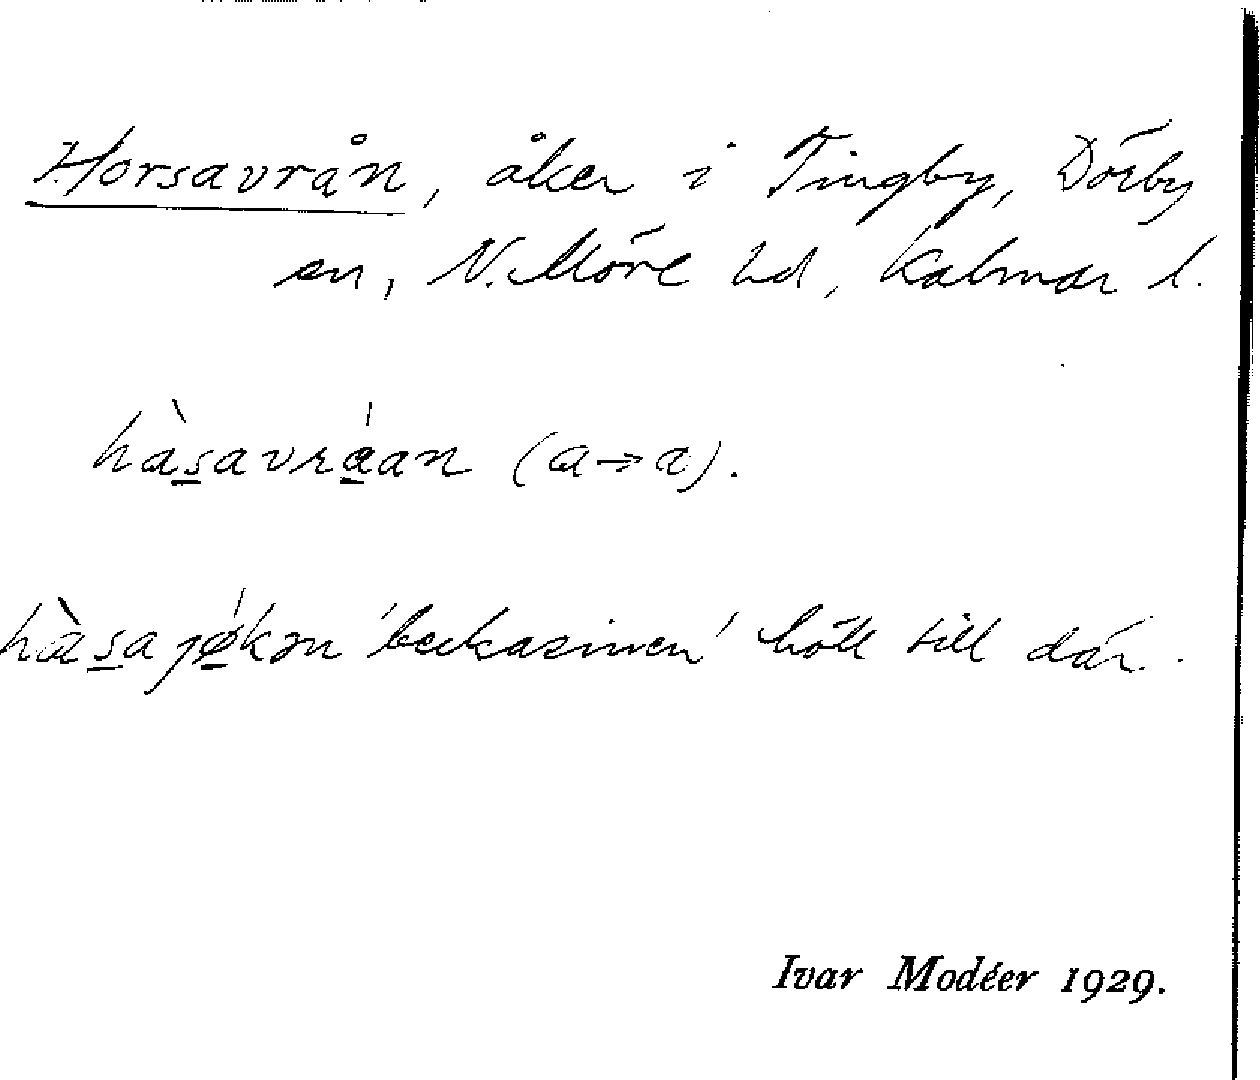 Horsavrån, åker i Tingby, Dörby
sn, N. Möre hd, Kalmar l.
hàsavráan (a→a).
hàsajøkən 'beckasinen' höll till där.
Ivar Modéer 1929.